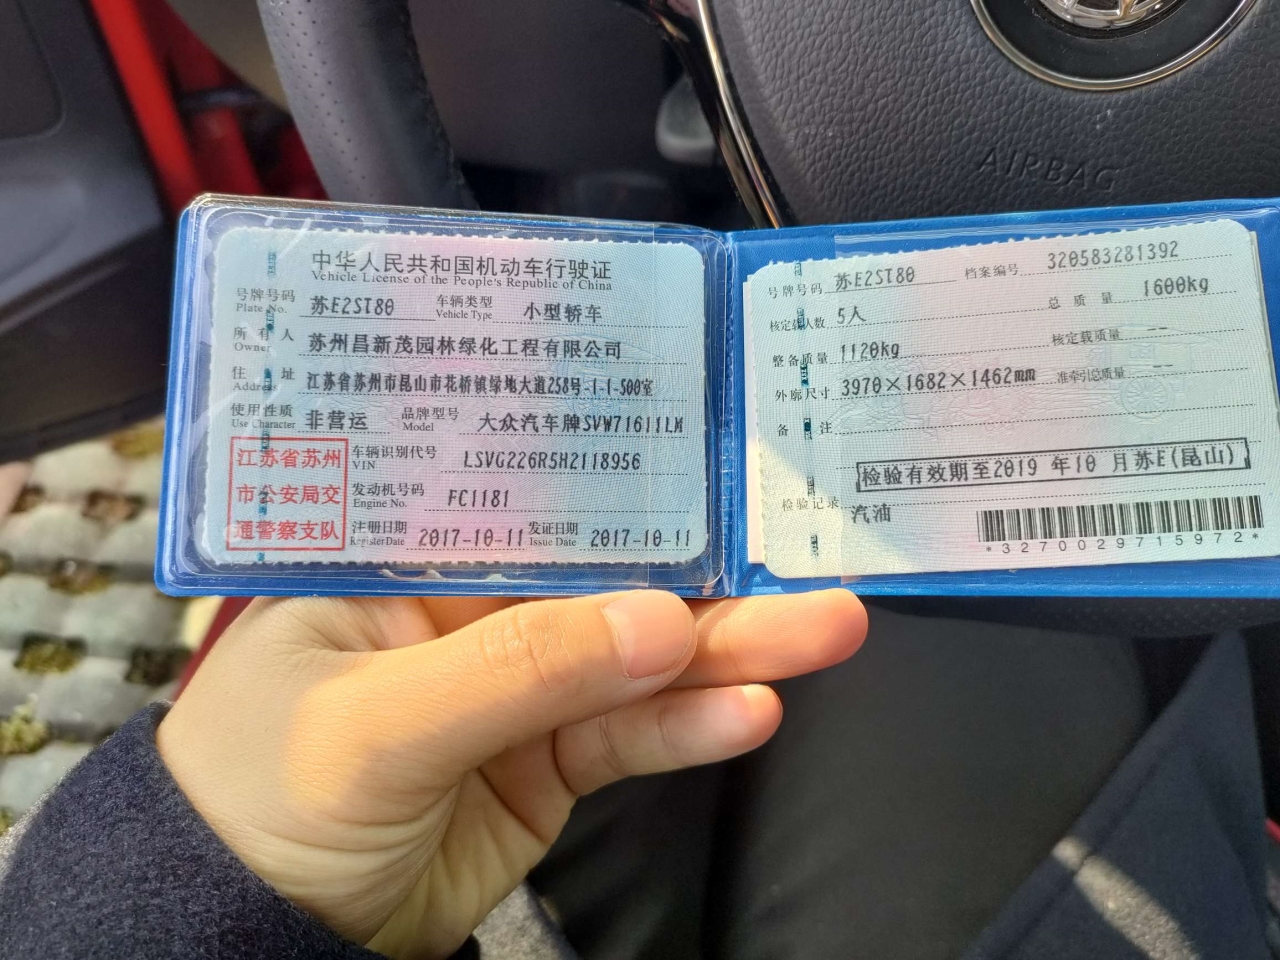 AIRBAG
中华人民共和国机动车行驶证
Vehicle License of the People's Republic of China
号牌号码 苏E2ST80 车辆类型 小型轿车
Plate No. Vehicle Type
所有人 苏州昌新茂园林绿化工程有限公司
Owner
住址 江苏省苏州市昆山市花桥镇绿地大道258号-1-1-500室
Address
使用性质 非营运 品牌型号 大众汽车牌SVW71611LM
Use Character Model
江苏省苏州
市公安局交
通警察支队
车辆识别代号 LSVG226R5H2118956
VIN
发动机号码 FC1181
Engine No.
注册日期 2017-10-11 发证日期 2017-10-11
Register Date Issue Date
号牌号码 苏E2ST80 档案编号 320583281392
核定载人数 5人 总质量 1600kg
整备质量 1120kg 核定载质量 --
外廓尺寸 3970×1682×1462mm 准牵引总质量 --
备注
检验有效期至2019年10月苏E(昆山)
检验记录
汽油
*3270029715972*